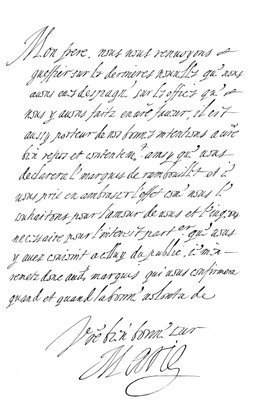 Mon frere, nous nous renuoyons
gueffier sur les dernieres nouuelles que nous
auons eues despagne sur les offices que
nous y auons faits en vre faueur, il est
aussy porteur de nos bonnes intentions a vre
bien repos et contentemt. ainsy que vous
declarera le marquis de rambouillet et
vous prie en embrasser l'effet come nous le
souhaitons pour l'amour de vous et
necessaire pour l'interest parter que vous
y auez conioint a celuy du public,
remets donc audt marquis qui vous confirmera
quand et quand la bonne volonte de
Vre bien bonne sœur
Marie